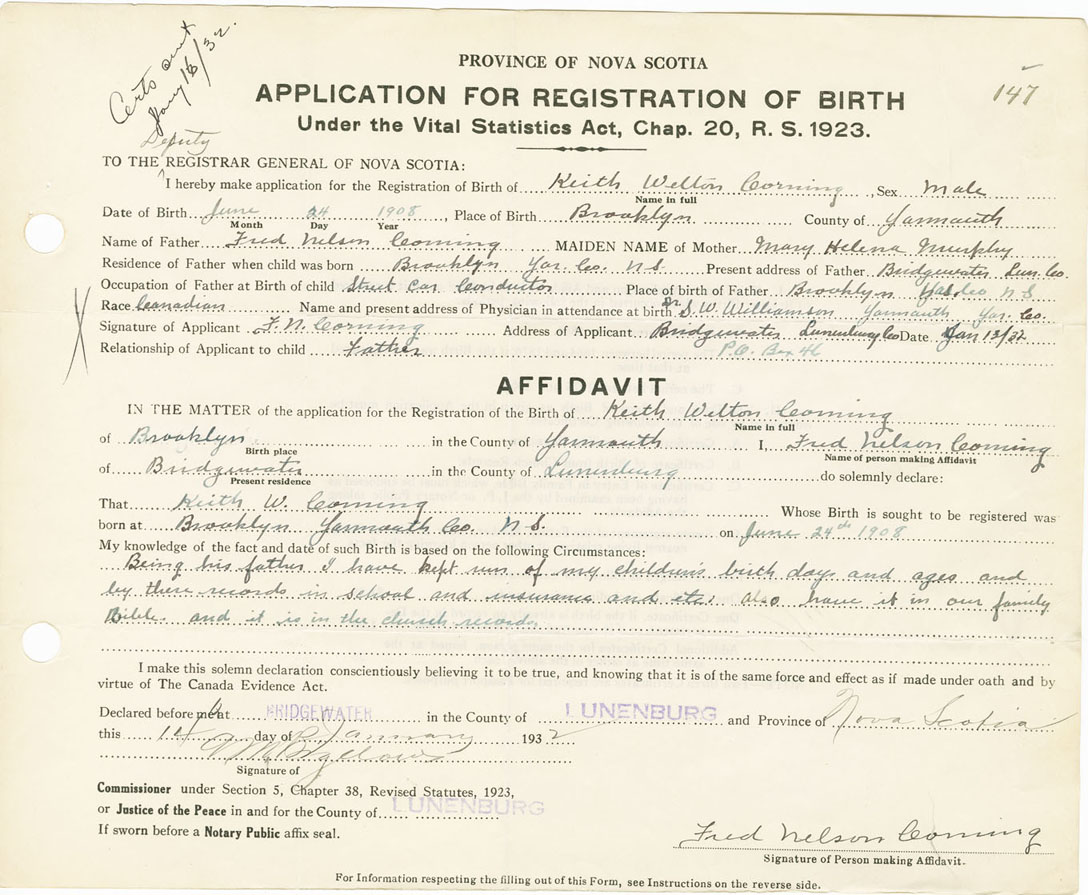 Certs sent
Jany 16/32.
PROVINCE OF NOVA SCOTIA
147
APPLICATION FOR REGISTRATION OF BIRTH
Under the Vital Statistics Act, Chap. 20, R. S. 1923.
Deputy
TO THE ^ REGISTRAR GENERAL OF NOVA SCOTIA:
I hereby make application for the Registration of Birth of Keith Welton Corning, Sex Male
Name in full
Date of Birth June 24 1908, Place of Birth Brooklyn County of Yarmouth
Month Day Year
Name of Father Fred Nelson Corning MAIDEN NAME of Mother Mary Helena Murphy
Residence of Father when child was born Brooklyn Yar. Co. N S Present address of Father Bridgewater Lun. Co.
Occupation of Father at Birth of child Street Car Conductor Place of birth of Father Brooklyn N S
Race Canadian Name and present address of Physician in attendance at birth Dr S. W. Williamson Yarmouth Yar. Co.
Signature of Applicant F. N. Corning Address of Applicant Bridgewater Lunenburg Co Date Jan 13/32
Relationship of Applicant to child Father P.O. Box 46
AFFIDAVIT
IN THE MATTER of the application for the Registration of the Birth of Keith Welton Corning
Name in full
of Brooklyn in the County of Yarmouth I, Fred Nelson Corning
Birth place Name of person making Affidavit
of Bridgewater in the County of Lunenburg do solemnly declare:
Present residence
That Keith W. Corning Whose Birth is sought to be registered was
born at Brooklyn Yarmouth Co. N S. on June 24th 1908
My knowledge of the fact and date of such Birth is based on the following Circumstances:
Being his father I have kept run of my children's birth days and ages and
by there records in school and insurance and etc, also have it in our family
Bible. and it is in the church records
I make this solemn declaration conscientiously believing it to be true, and knowing that it is of the same force and effect as if made under oath and by
virtue of The Canada Evidence Act.
Declared before me at BRIDGEWATER in the County of LUNENBURG and Province of Nova Scotia
this 14 day of January 1932
Signature of
Commissioner under Section 5, Chapter 38, Revised Statutes, 1923,
or Justice of the Peace in and for the County of LUNENBURG
If sworn before a Notary Public affix seal.
Fred Nelson Corning
Signature of Person making Affidavit.
For Information respecting the filling out of this Form, see Instructions on the reverse side.